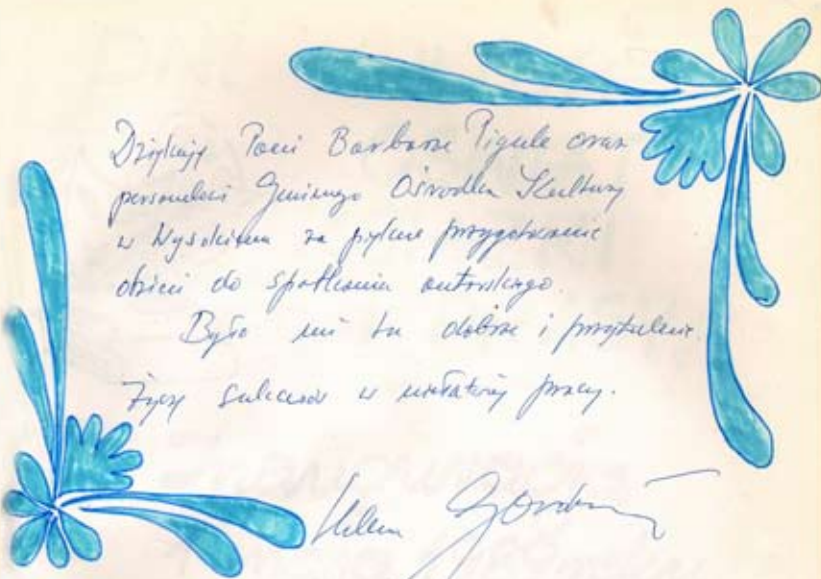 Dziękuję Pani Barbarze Pigule oraz
personelowi Gminnego Ośrodka Kultury
w Wysokiem za piękne przygotowanie
dzieci do spotkania autorskiego.
Było mi tu dobrze i przytulnie.
Życzę sukcesów w niełatwej pracy.